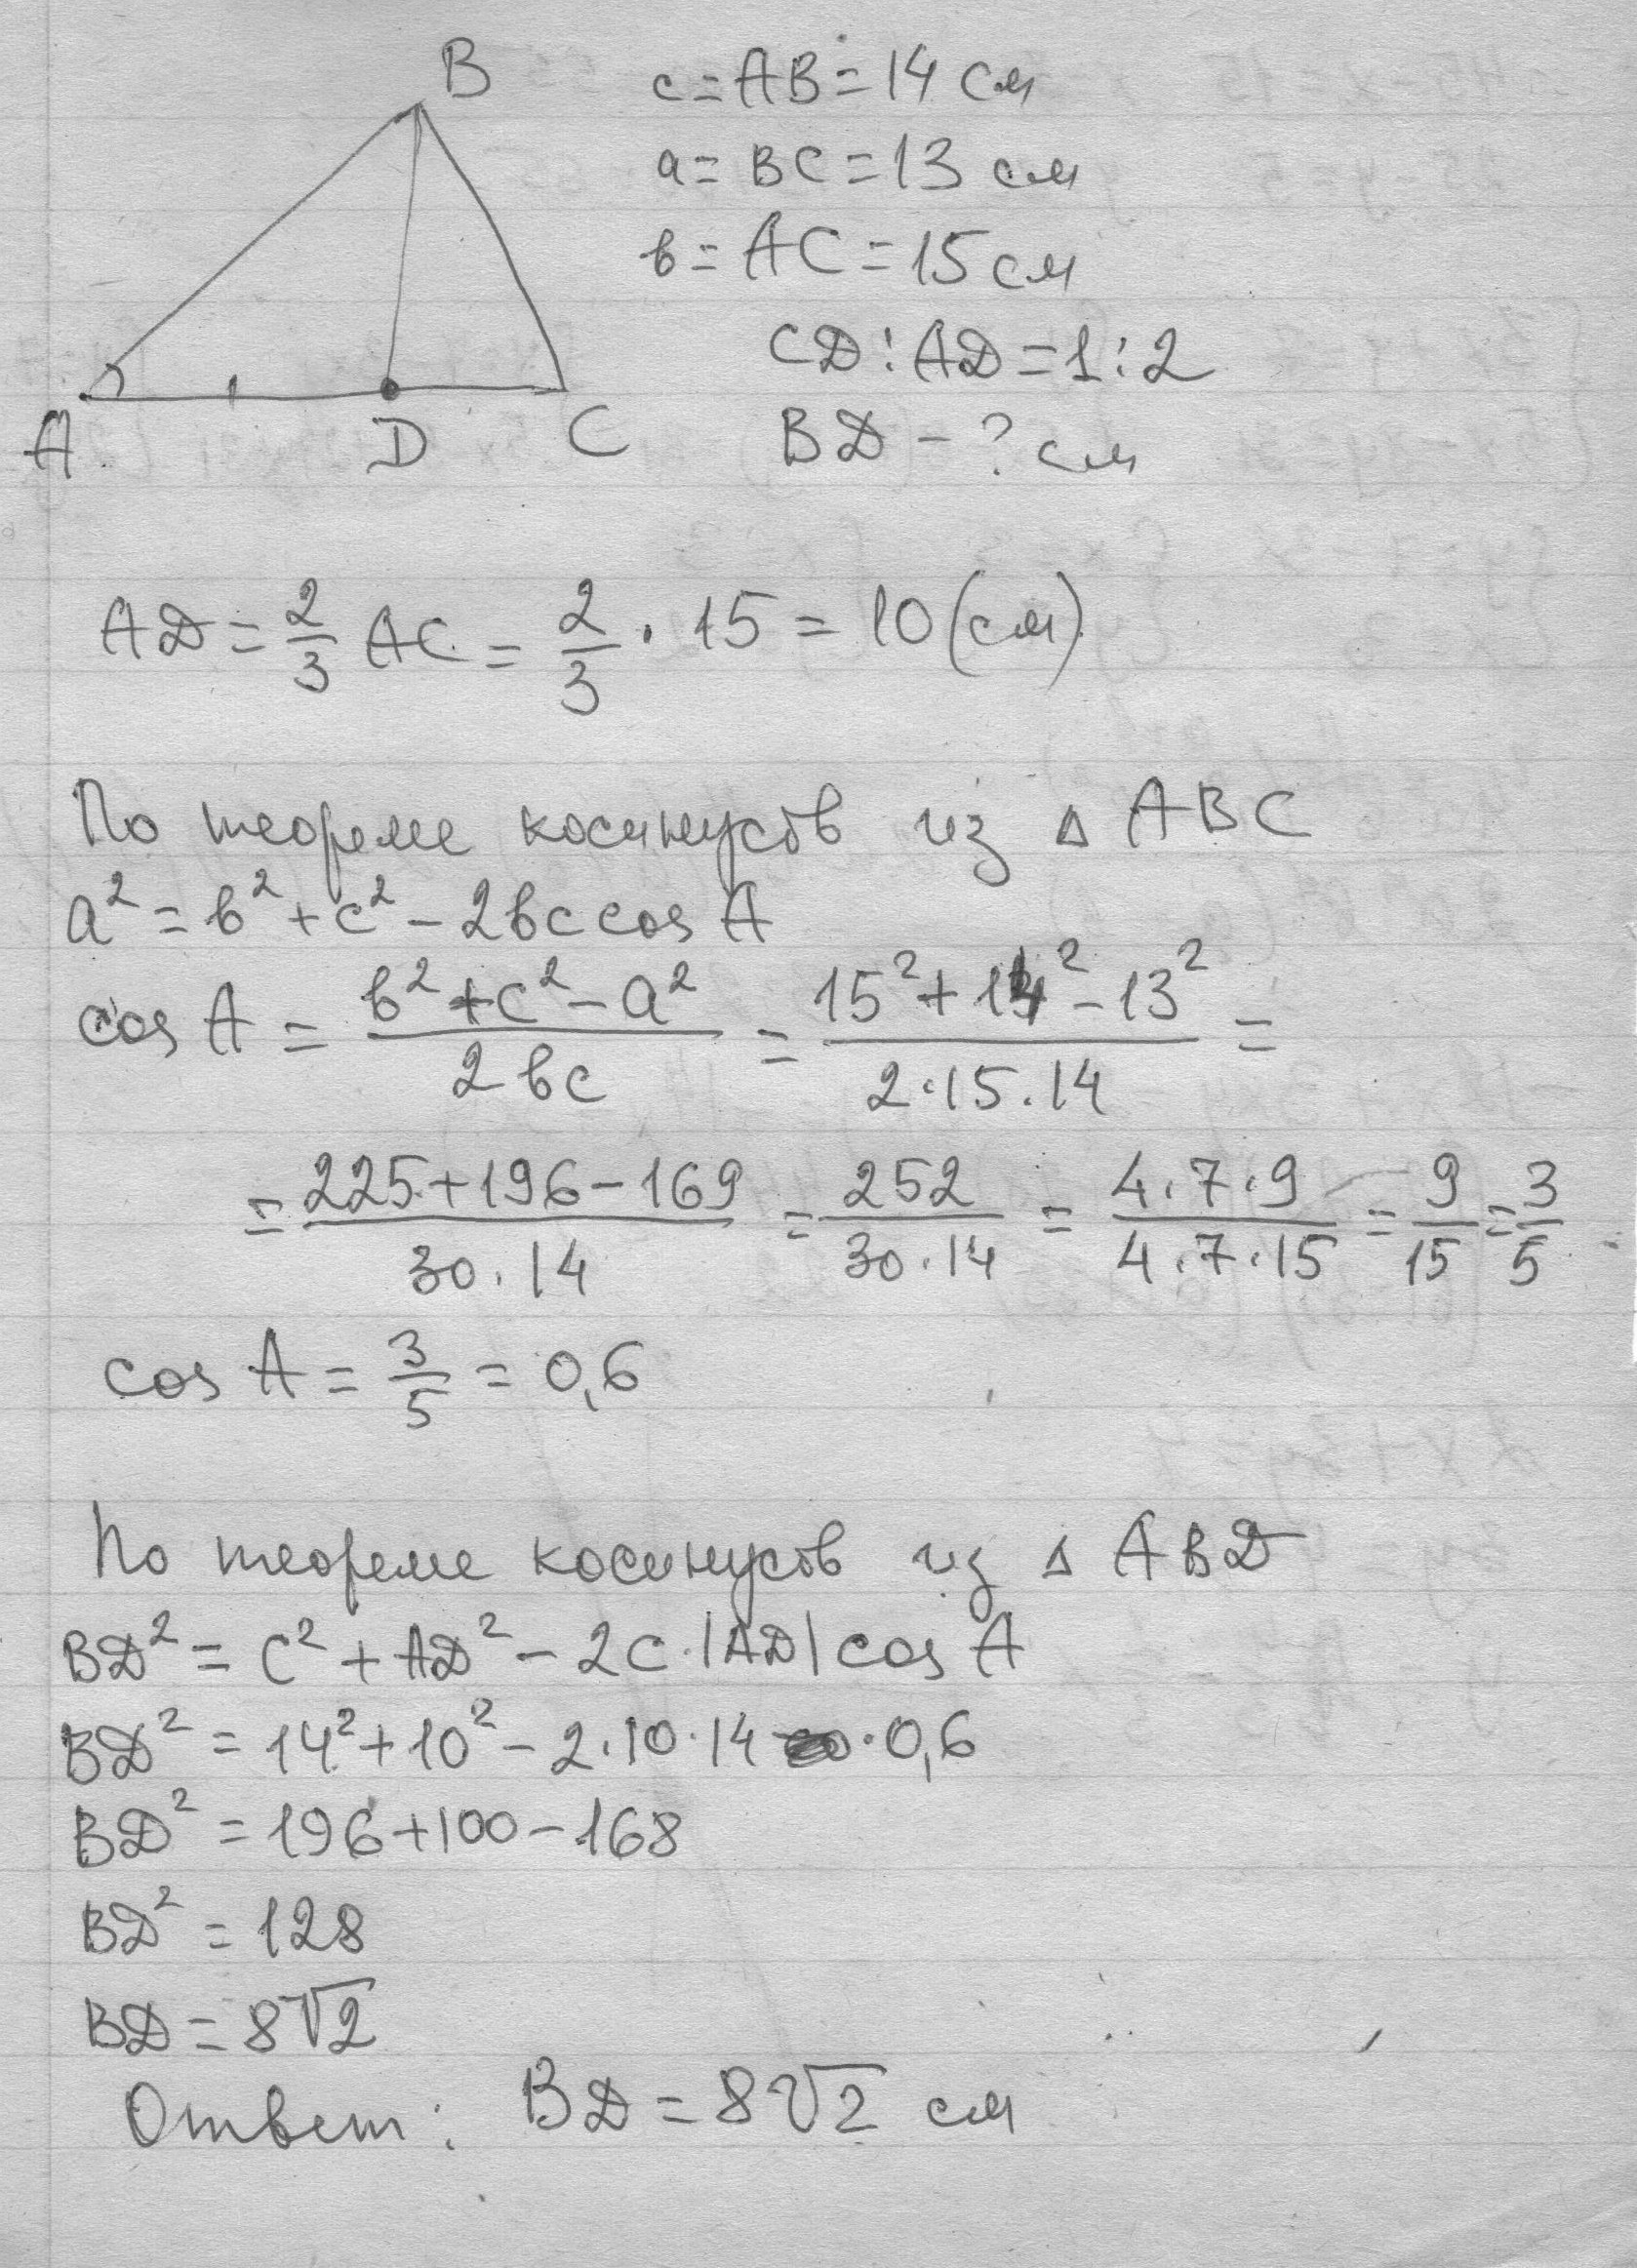 B
c = AB = 14 см
a = BC = 13 см
в = AC = 15 см
CD : AD = 1 : 2
BD - ? см
A D C
AD = 2/3 AC = 2/3 · 15 = 10 (см)
По теореме косинусов из Δ ABC
a² = в² + c² - 2вc cos A
cos A = (в² + c² - a²)/(2вc) = (15² + 14² - 13²)/(2·15·14) =
= (225 + 196 - 169)/(30·14) = 252/(30·14) = (4·7·9)/(4·7·15) = 9/15 = 3/5
cos A = 3/5 = 0,6
По теореме косинусов из Δ ABD
BD² = c² + AD² - 2c·|AD| cos A
BD² = 14² + 10² - 2·10·14 · 0,6
BD² = 196 + 100 - 168
BD² = 128
BD = 8√2
Ответ: BD = 8√2 см